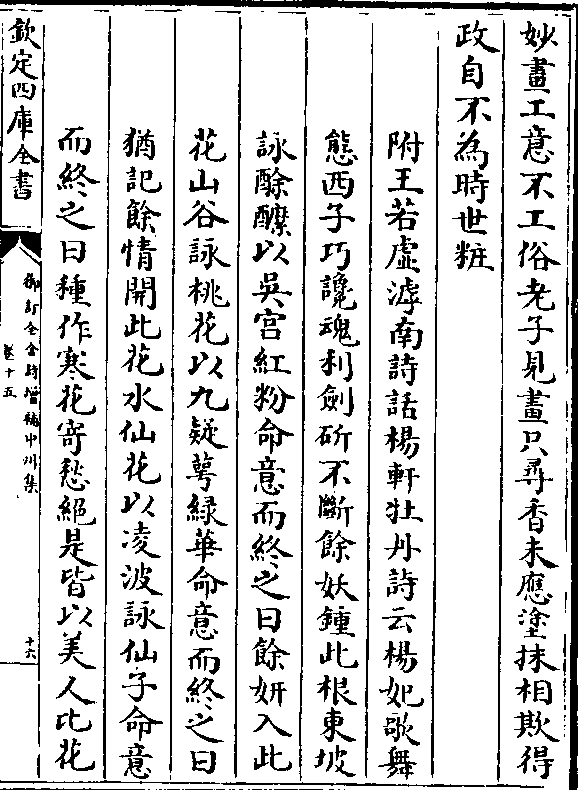 妙畫工意不工俗老子見畫只尋香未應塗抹相欺得
政自不為時世粧
附王若虛滹南詩話楊軒牡丹詩云楊妃歌舞
態西子巧讒魂利劍斫不斷餘妖鍾此根東坡
詠酴醿以吳宮紅粉命意而終之曰餘妍入此
花山谷詠桃花以九疑萼緑華命意而終之曰
猶記餘情開此花水仙花以凌波詠仙子命意
而終之曰種作寒花寄愁絕是皆以美人比花
欽定四庫全書
御訂全金詩增補中州集
卷十五
十六